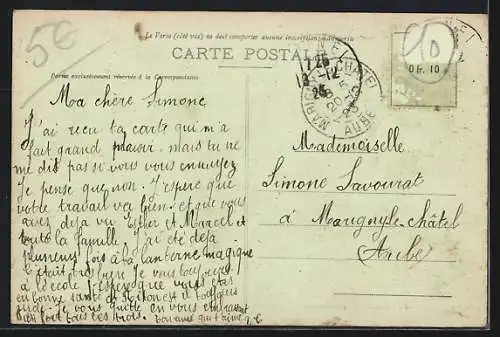 5€
Le Verso (côté vue) ne doit comporter aucune inscription
CARTE POSTALE
Partie exclusivement réservée à la Correspondance
Ma chère Simone
J'ai reçu ta carte qui m'a
fait grand plaisir mais tu ne
me dit pas si vous vous ennuyez
Je pense que non. J'espère que
votre travail va bien et que vous
avez déjà vu Esther et Marcel et
toute la famille J'ai été déjà
plusieurs fois à la lanterne magique
C'était très bien Je vais toujours
à l'école J'espère que vous êtes
en bonne santé et toujours
Je vous quitte en vous embrassant
bien fort tous les trois.
qui t'aime
MARIGNY-LE-CHATEL
AUBE
10
DÉ. 10
Mademoiselle
Simone Savourat
à Marigny-le-Châtel
Aube